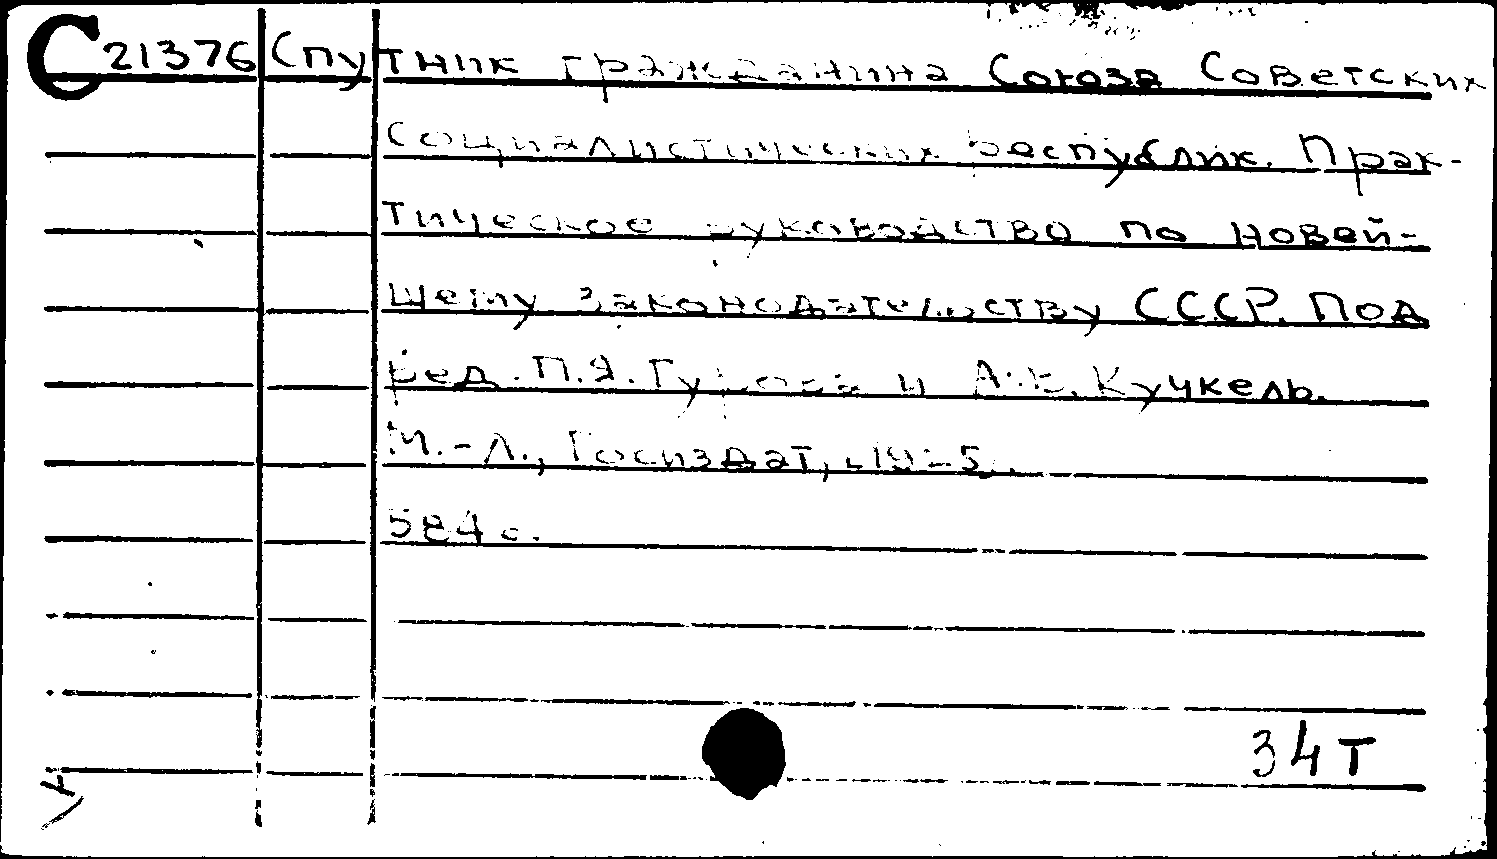 С21376 Спутник гражданина Союза Советских
социалистических республик. Прак-
тическое руководство по новей-
шему законодательству СССР. Под
ред. П.Я. Гурова и А.Е. Кучкель.
М.-Л., Госиздат,
584 с.
34 Т